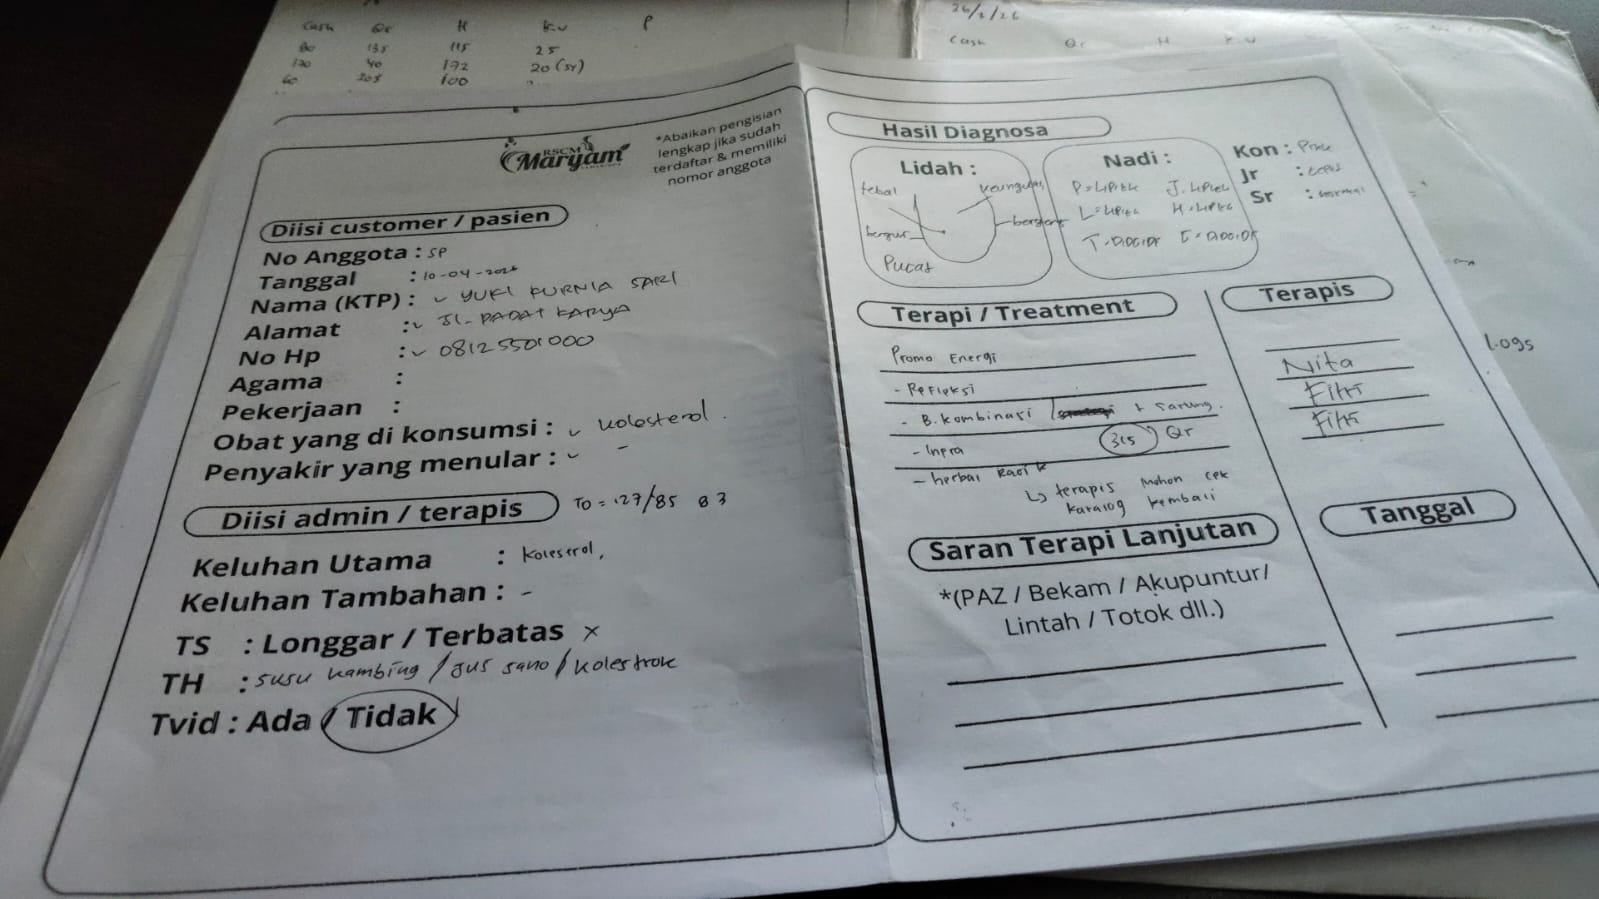 Cash Qr H K.U P
80 135 115 25
170 40 172 20 (sr)
60 205 100
26/2/26
Cash Qr H K.U
RSCM
Maryam
*Abaikan pengisian
lengkap jika sudah
terdaftar & memiliki
nomor anggota
Diisi customer / pasien
No Anggota : SP
Tanggal : 10-04-2026
Nama (KTP) : YUKI KURNIA SARI
Alamat : Jl. PADAT KARYA
No Hp : 08125501000
Agama :
Pekerjaan :
Obat yang di konsumsi : Kolesterol.
Penyakir yang menular : -
Diisi admin / terapis TD = 127/85 83
Keluhan Utama : Koleserol,
Keluhan Tambahan : -
TS : Longgar / Terbatas x
TH : susu kambing / Jus sano / Kolestrok
Tvid : Ada / Tidak
Hasil Diagnosa
Lidah :
tebal
bergur
Pucat
Nadi :
Kon :
Jr :
Sr :
Terapi / Treatment
Promo Energi
- Refleksi
- B. kombinasi + Sarung.
- Inpra 315 Qr
- herbal Racik
↳ terapis Mohon cek
katalog kembali
Terapis
Nita
Fitri
Fitri
Logs
Saran Terapi Lanjutan
*(PAZ / Bekam / Akupuntur/
Lintah / Totok dll.)
Tanggal